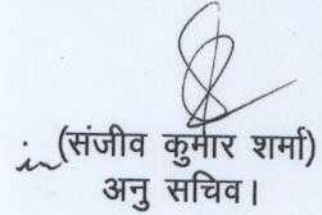 (संजीव कुमार शर्मा)
अनु सचिव।